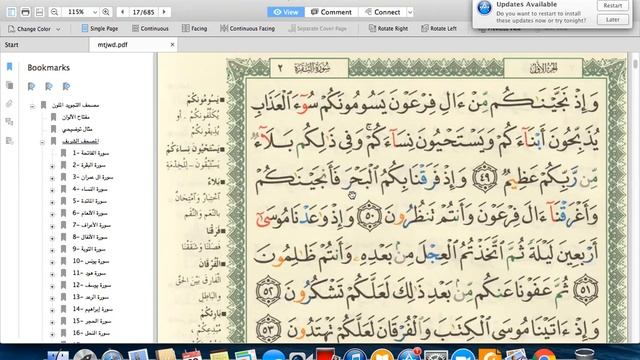 115%
17/685
View
Comment
Connect
Updates Available
Do you want to restart to install
these updates now or try tonight?
Restart
Later
Change Color
Single Page
Continuous
Facing
Continuous Facing
Separate Cover Page
Rotate Right
Rotate Left
Start
mtjwd.pdf
Bookmarks
مصحف التجويد الملون
مفتاح الألوان
مثال توضيحي
المصحف الشريف
1- سورة الفاتحة
2- سورة البقرة
3- سورة آل عمران
4- سورة النساء
5- سورة المائدة
6- سورة الأنعام
7- سورة الأعراف
8- سورة الأنفال
9- سورة التوبة
10- سورة يونس
11- سورة هود
12- سورة يوسف
13- سورة الرعد
14- سورة إبراهيم
15- سورة الحجر
16- سورة النحل
الجزء الأول
سورة البقرة ٢
وَإِذْ نَجَّيْنَٰكُم مِّنْ ءَالِ فِرْعَوْنَ يَسُومُونَكُمْ سُوٓءَ ٱلْعَذَابِ
يُذَبِّحُونَ أَبْنَآءَكُمْ وَيَسْتَحْيُونَ نِسَآءَكُمْ ۚ وَفِى ذَٰلِكُم بَلَآءٌ
مِّن رَّبِّكُمْ عَظِيمٌ ٤٩ وَإِذْ فَرَقْنَا بِكُمُ ٱلْبَحْرَ فَأَنجَيْنَٰكُمْ
وَأَغْرَقْنَآ ءَالَ فِرْعَوْنَ وَأَنتُمْ تَنظُرُونَ ٥٠ وَإِذْ وَٰعَدْنَا مُوسَىٰٓ
أَرْبَعِينَ لَيْلَةً ثُمَّ ٱتَّخَذْتُمُ ٱلْعِجْلَ مِنۢ بَعْدِهِۦ وَأَنتُمْ ظَٰلِمُونَ
٥١ ثُمَّ عَفَوْنَا عَنكُم مِّنۢ بَعْدِ ذَٰلِكَ لَعَلَّكُمْ تَشْكُرُونَ ٥٢
وَإِذْ ءَاتَيْنَا مُوسَى ٱلْكِتَٰبَ وَٱلْفُرْقَانَ لَعَلَّكُمْ تَهْتَدُونَ ٥٣
يَسُومُونَكُمْ
يُكَلِّفُونَكُمْ ـ أو
يُذِيقُونَكُمْ
يَسْتَحْيُونَ نِسَاءَكُمْ
يَسْتَبْقُونَ ـ لِلْخِدْمَةِ
بَلَاءٌ
اخْتِبَارٌ وَامْتِحَانٌ
بِالنِّعَمِ وَالنِّقَمِ
فَرَقْنَا
فَصَلْنَا وَشَقَقْنَا
الْفُرْقَانَ
الْفَارِقَ بَيْنَ الْحَقِّ
وَالْبَاطِلِ
بَارِئِكُمْ